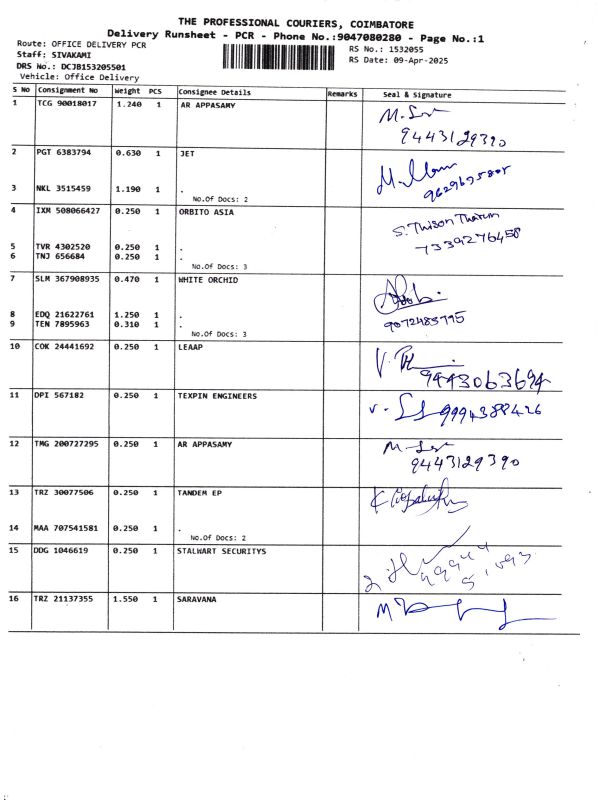 THE PROFESSIONAL COURIERS, COIMBATORE
Delivery Runsheet - PCR - Phone No.:9047080280 - Page No.:1
Route: OFFICE DELIVERY PCR
RS No.: 1532055
Staff: SIVAKAMI
RS Date: 09-Apr-2025
DRS No.: DCJB153205501
Vehicle: Office Delivery
S No Consignment No Weight PCS Consignee Details Remarks Seal & Signature
1 TCG 90018017 1.240 1 AR APPASAMY
9443129390
2 PGT 6383794 0.630 1 JET
3 NKL 3515459 1.190 1 .
No.Of Docs: 2
4 IXM 508066427 0.250 1 ORBITO ASIA
S. Thison Tharun
7339276458
5 TVR 4302520 0.250 1 .
6 TNJ 656684 0.250 1 .
No.Of Docs: 3
7 SLM 367908935 0.470 1 WHITE ORCHID
8 EDQ 21622761 1.250 1 .
9 TEN 7895963 0.310 1 .
9072483795
No.Of Docs: 3
10 COK 24441692 0.250 1 LEAAP
9443063694
11 DPI 567182 0.250 1 TEXPIN ENGINEERS
9994388426
12 TMG 200727295 0.250 1 AR APPASAMY
9443129390
13 TRZ 30077506 0.250 1 TANDEM EP
14 MAA 707541581 0.250 1 .
No.Of Docs: 2
15 DDG 1046619 0.250 1 STALWART SECURITYS
16 TRZ 21137355 1.550 1 SARAVANA